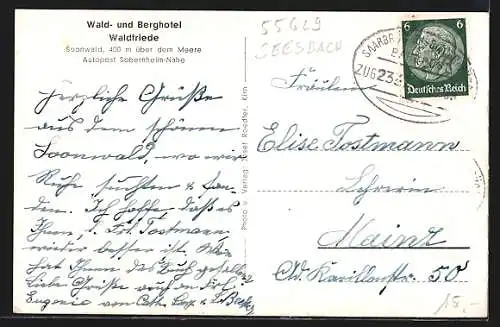 Wald- und Berghotel
Waldfriede
Soonwald, 400 m über dem Meere
Autopost Sobernheim-Nahe
55629
SEESBACH
6 6
Deutsches Reich
SAARBR
ZUG 233
Herzliche Grüße
aus dem schönen
Soonwald, wo wir
Ruhe suchten & fan-
den. Ich hoffe daß es
Ihnen, l. Frl. Tostmann,
wieder besser ist. Wie
hat Ihnen das Buch gefallen?
Liebe Grüße auch an
Eugenie von Cath.
Photo u. Verlag Josef Roedler, Kirn
Fräulein
Elise Tostmann
Lehrerin
Mainz
Kaiserstr. 50
15.-